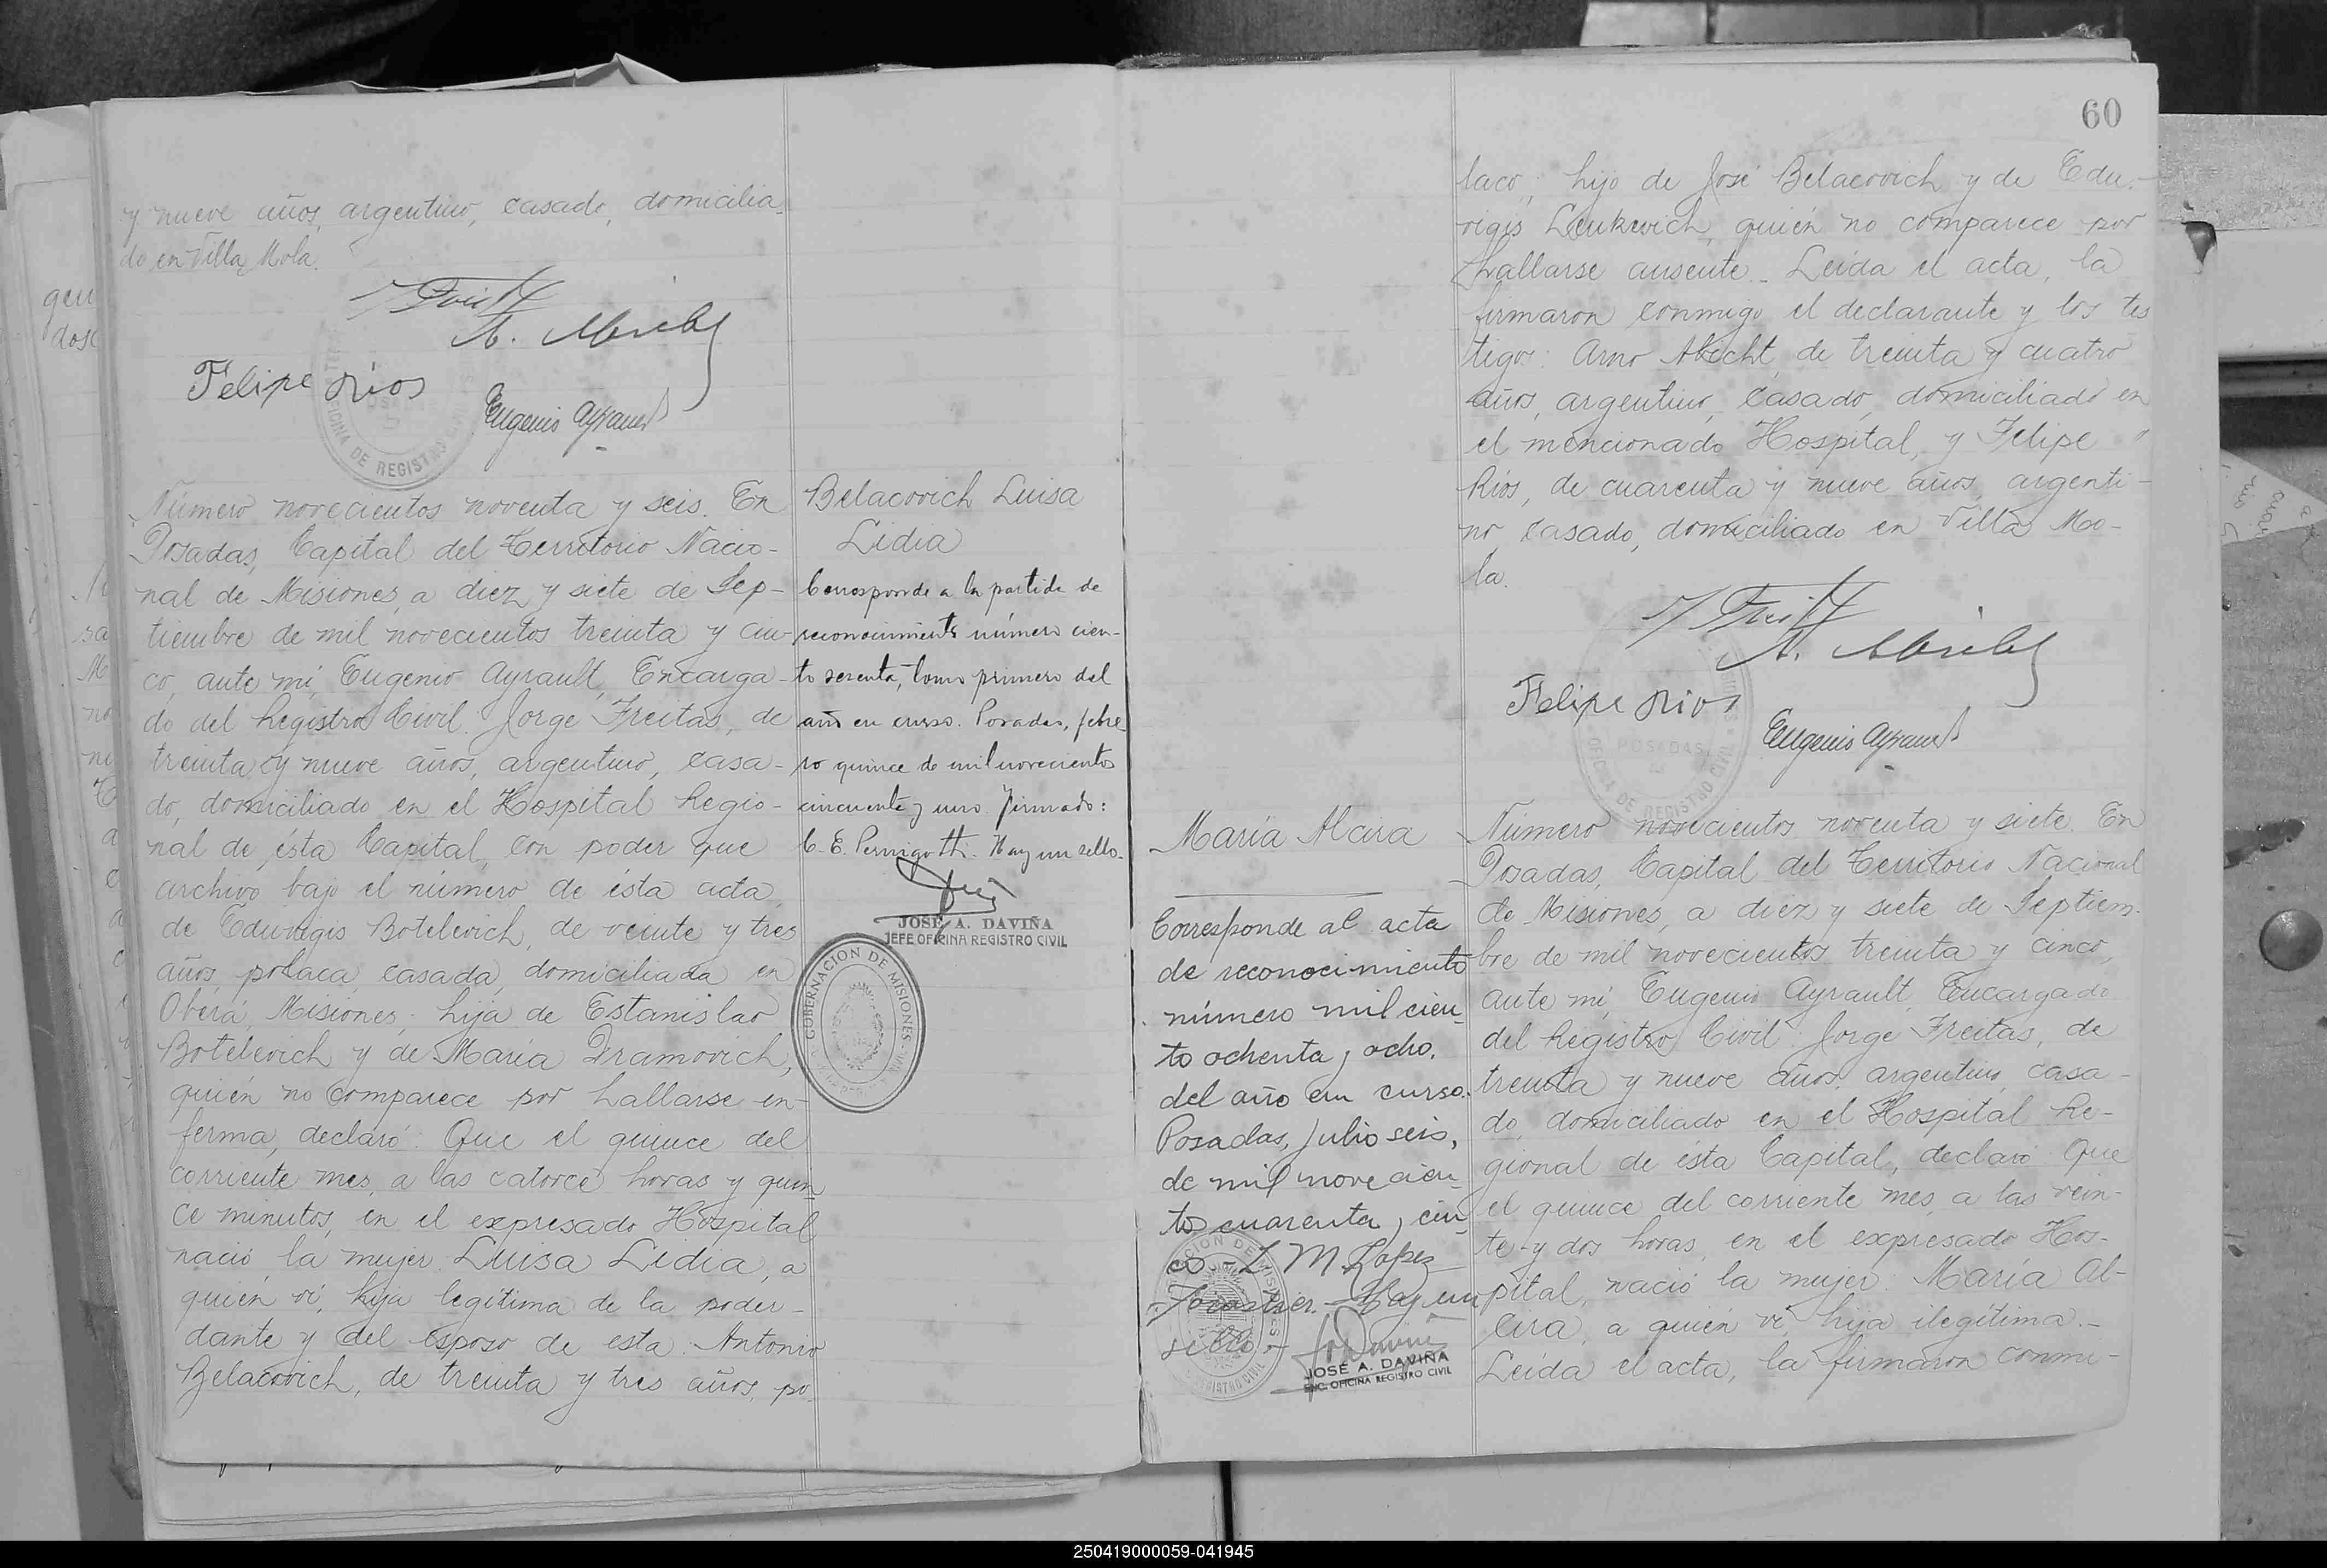 y nueve años, argentino, casado, domicilia-
do en Villa Mola.
Felipe Rios
Eugenio Ayrault
OFICINA DE REGISTRO
Número novecientos noventa y seis. En
Posadas, Capital del Territorio Nacio-
nal de Misiones, a diez y siete de Sep-
tiembre de mil novecientos treinta y cin-
co, ante mí, Eugenio Ayrault, Encarga-
do del Registro Civil. Jorge Freitas, de
treinta y nueve años, argentino, casa-
do, domiciliado en el Hospital Regio-
nal de ésta Capital, con poder que
archivo bajo el número de ésta acta,
de Eduvigis Botelevich, de veinte y tres
años, polaca, casada, domiciliada en
Oberá, Misiones; hija de Estanislao
Botelevich y de María Dramovich,
quién no comparece por hallarse en-
ferma, declaró: Que el quince del
corriente mes, a las catorce horas y quin
ce minutos, en el expresado Hospital
nació la mujer Luisa Lidia, a
quién ví, hija legítima de la poder-
dante y del esposo de esta: Antonio
Belacovich, de treinta y tres años, po-
Belacovich Luisa
Lidia
Corresponde a la partida de
reconocimiento número cien-
to sesenta, tomo primero del
año en curso. Posadas, febre
ro quince de mil novecientos
cincuenta y uno. Firmado:
C. E. Pernigotti. Hay un sello.
JOSÉ A. DAVIÑA
JEFE OFICINA REGISTRO CIVIL
GOBERNACION DE MISIONES
60
laco; hijo de José Belacovich y de Edu-
vigis Leukevich, quién no comparece por
hallarse ausente. Leída el acta, la
firmaron conmigo el declarante y los tes
tigos: Arno Abecht, de treinta y cuatro
años, argentino, casado, domiciliado en
el mencionado Hospital, y Felipe "
Rios, de cuarenta y nueve años, argenti-
no, casado, domiciliado en Villa Mo-
la.
Felipe Rios
Eugenio Ayrault
POSADAS
OFICINA DE REGISTRO CIVIL
María Alcira
Corresponde al acta
de reconocimiento
número mil cien-
to ochenta y ocho,
del año en curso.
Posadas, Julio seis,
de mil novecien-
to cuarenta y cin-
co. - L M Lopez
Hay un
sello.-
JOSÉ A. DAVIÑA
ENC. OFICINA REGISTRO CIVIL
Número novecientos noventa y siete. En
Posadas, Capital del Territorio Nacional
de Misiones, a diez y siete de Septiem-
bre de mil novecientos treinta y cinco,
ante mí, Eugenio Ayrault, Encargado
del Registro Civil: Jorge Freitas, de
treinta y nueve años, argentino, casa-
do, domiciliado en el Hospital Re-
gional de ésta Capital, declaró: Que
el quince del corriente mes, a las vein-
te y dos horas, en el expresado Hos-
pital, nació la mujer: María Al-
cira, a quién ví, hija ilegítima.-
Leída el acta, la firmaron conmi-
250419000059-041945